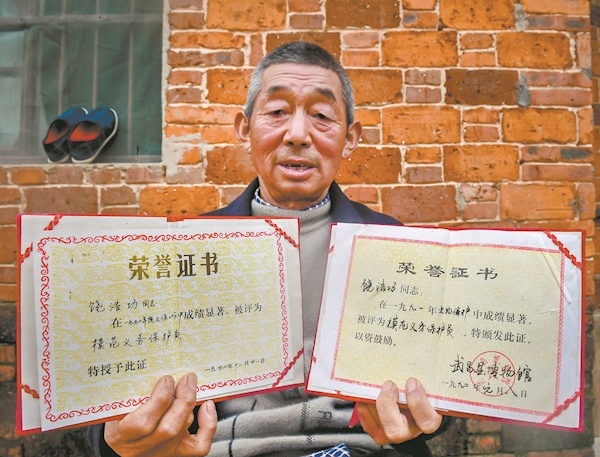 荣誉证书
饶浩功同志
在一九九〇年度文保工作中成绩显著，被评为
模范义务保护员
特授予此证
荣誉证书
饶浩功同志：
在一九九一年文物保护中成绩显著，
被评为模范义务保护员。特颁发此证，
以资鼓励。
武昌县博物馆
一九九二年元月八日